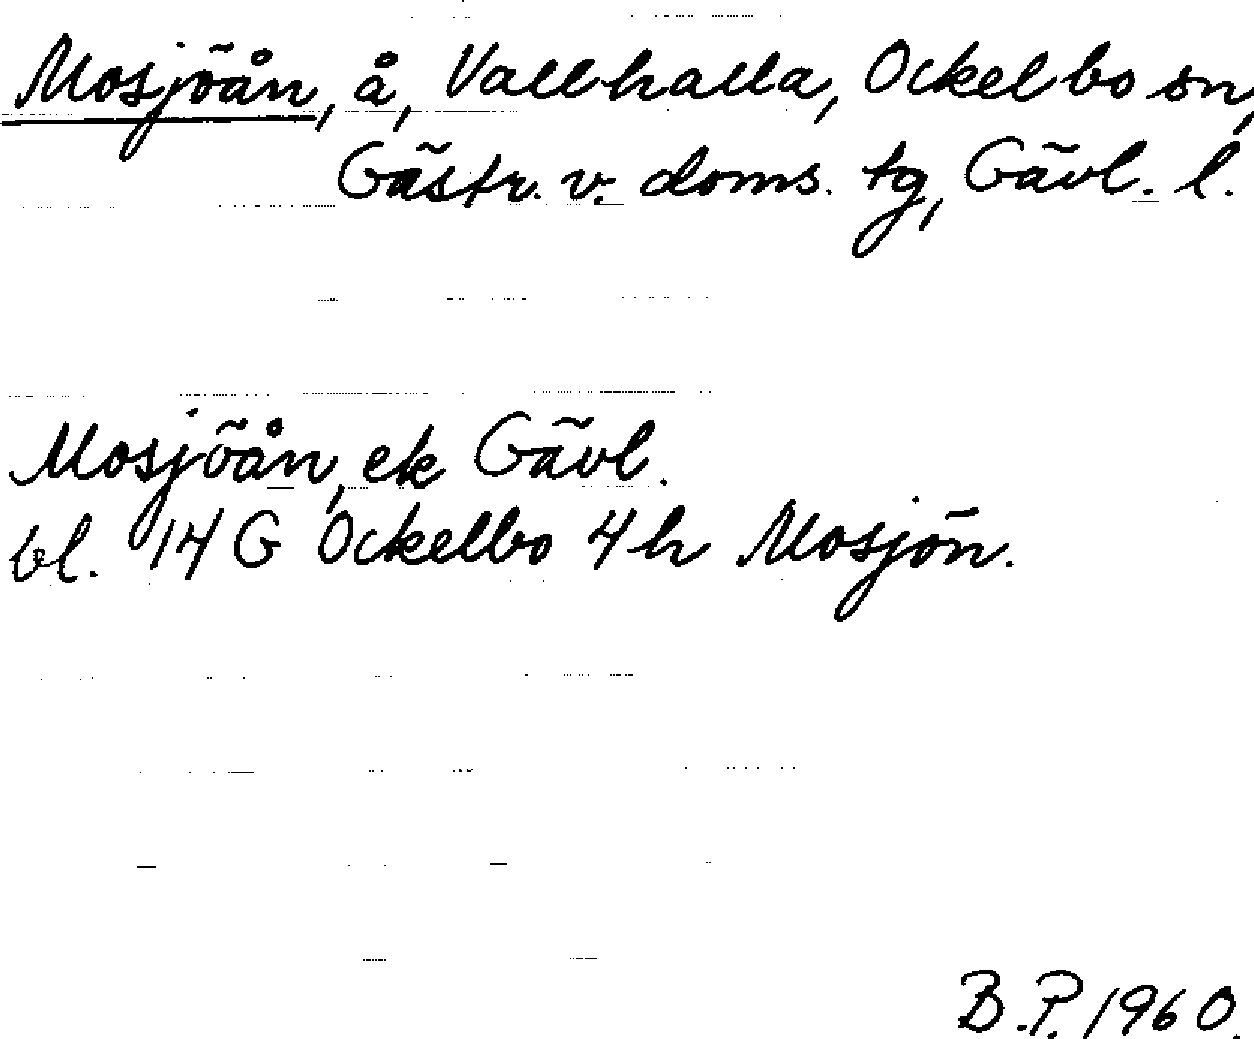 Mosjöån, å, Vallhalla, Ockelbo sn,
Gästr. v. doms. tg, Gävl. l.
Mosjöån, ek Gävl.
bl. 14 G Ockelbo 4h Mosjön.
B.P. 1960.